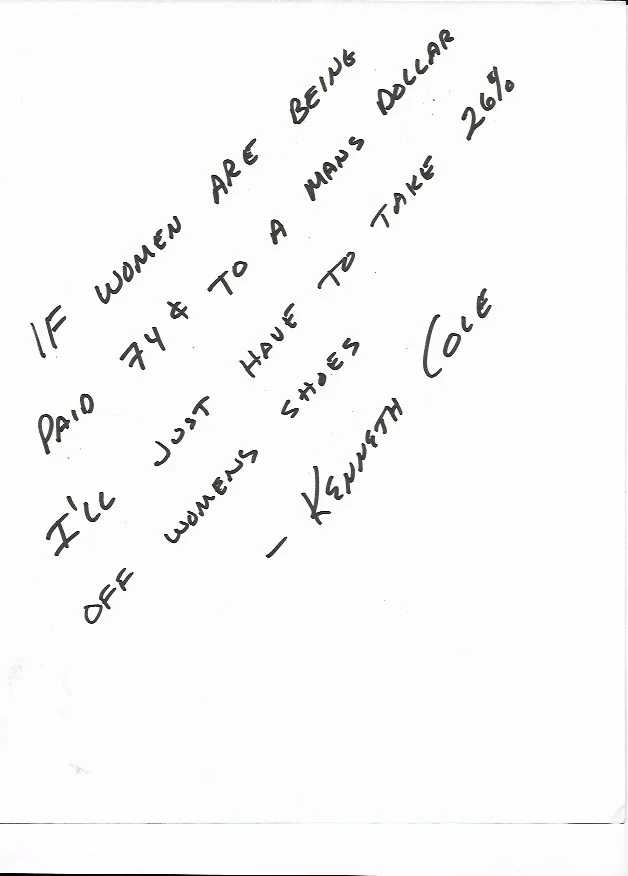 IF WOMEN ARE BEING
PAID 74¢ TO A MANS DOLLAR
I'LL JUST HAVE TO TAKE 26%
OFF WOMENS SHOES
- KENNETH COLE